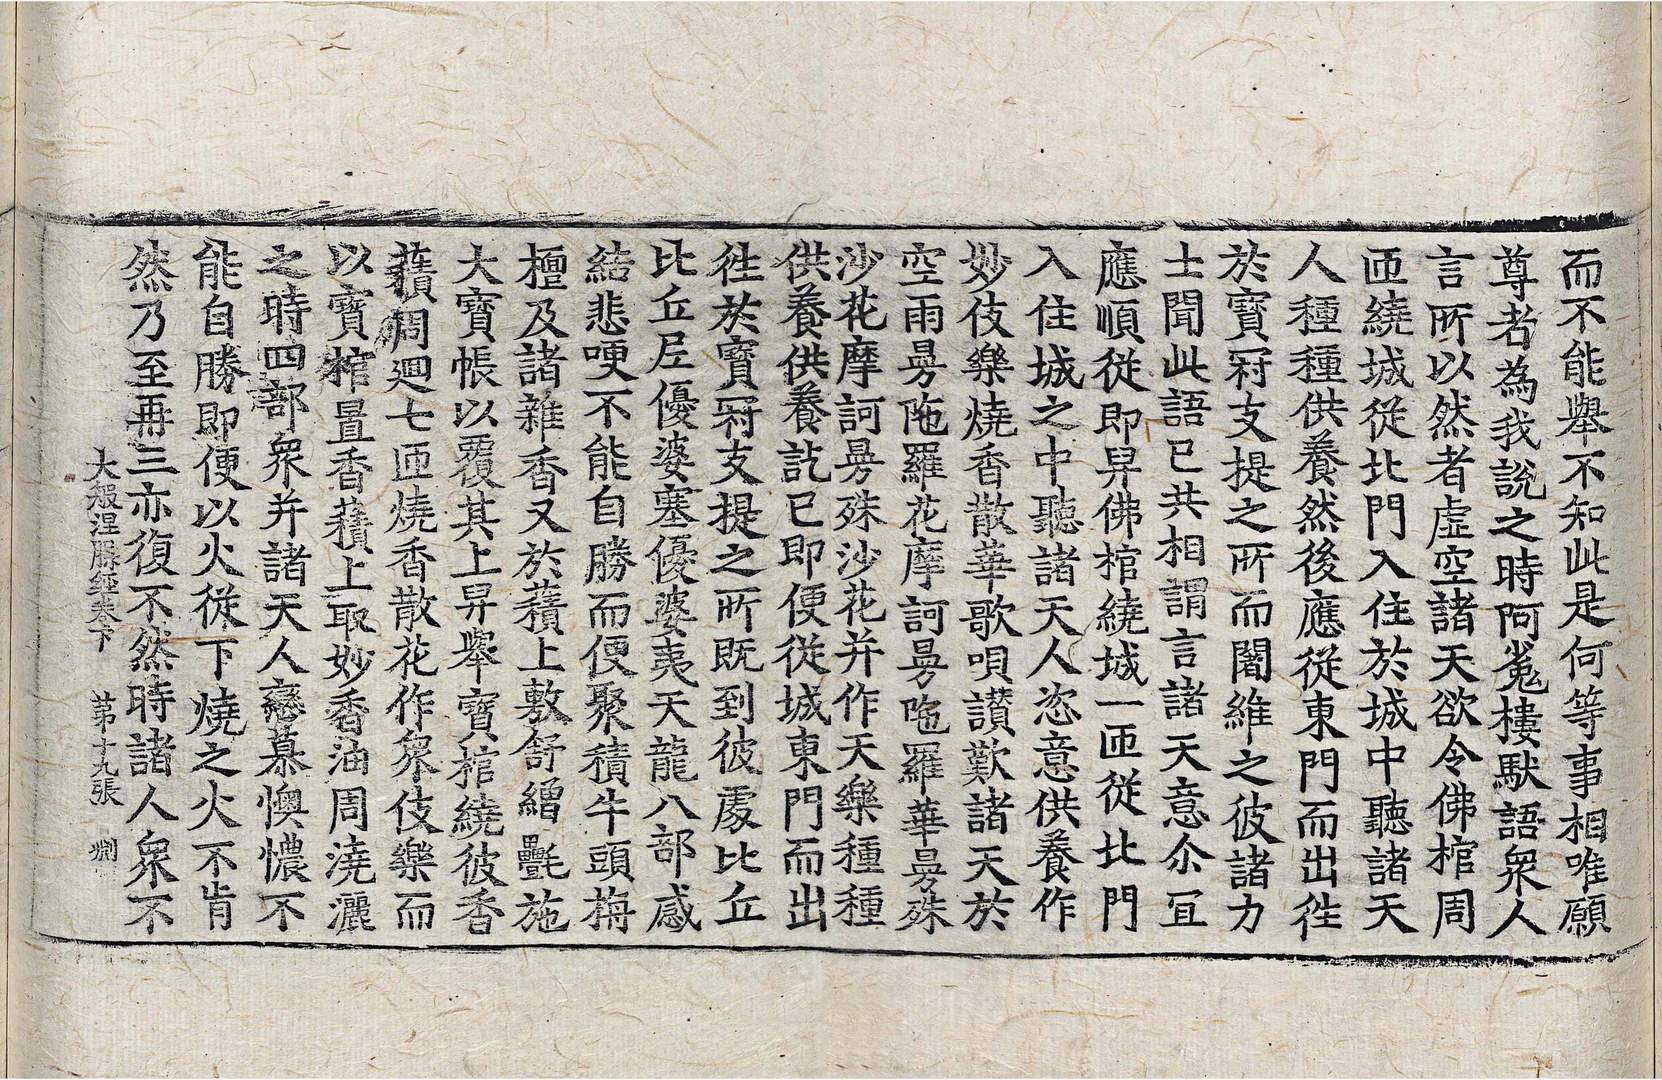 而不能舉不知此是何等事相唯願
尊者為我說之時阿㝹樓馱語衆人
言所以然者虛空諸天欲令佛棺周
匝繞城從北門入住於城中聽諸天
人種種供養然後應從東門而出往
於寶冠支提之所而闍維之彼諸力
士聞此語已共相謂言諸天意尒冝
應順從即舁佛棺繞城一匝從北門
入住城之中聽諸天人恣意供養作
妙伎樂燒香散華歌唄讃歎諸天於
空雨曼陁羅花摩訶曼陁羅華曼殊
沙花摩訶曼殊沙花并作天樂種種
供養供養訖已即便從城東門而出
往於寶冠支提之所既到彼處比丘
比丘尼優婆塞優婆夷天龍八部感
結悲哽不能自勝而便聚積牛頭栴
檀及諸雜香又於䕽上敷舒繒㲲施
大寶帳以覆其上舁舉寶棺繞彼香
䕽周迴七匝燒香散花作衆伎樂而
以寶棺置香䕽上取妙香油周澆灑
之時四部衆并諸天人戀慕懊憹不
能自勝即便以火從下燒之火不肯
然乃至再三亦復不然時諸人衆不
大般涅槃經卷下 第十九張 淵